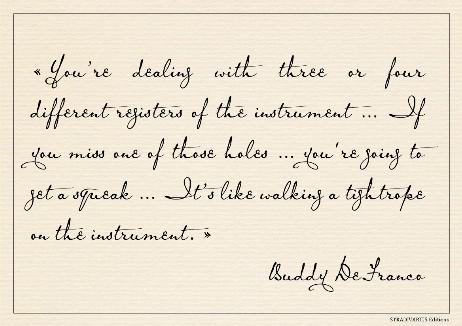 « You're dealing with three or four
different registers of the instrument ... If
you miss one of those holes ... you're going to
get a squeak ... It's like walking a tightrope
on the instrument. »
Buddy DeFranco
STRADIVARIUS Editions